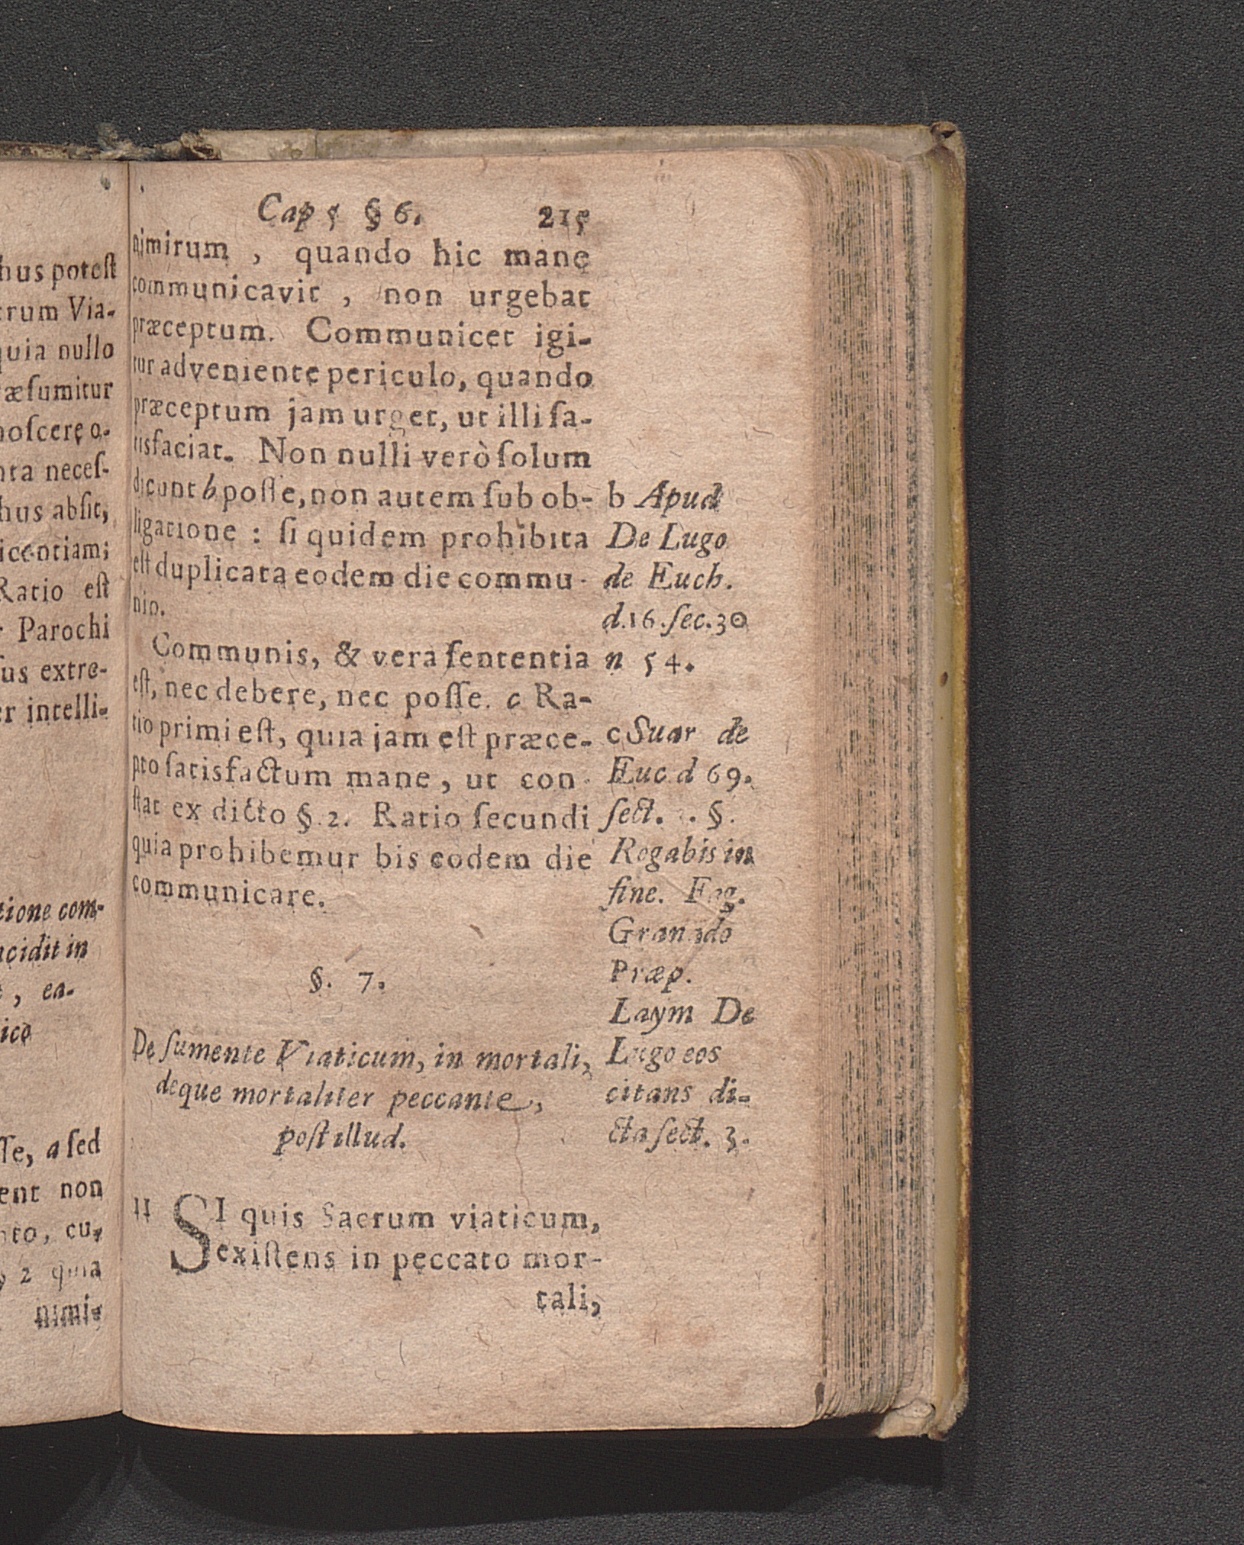 Cap 5 § 6. 215
nimirum , quando hic mane
communicavit , non urgebat
præceptum. Communicet igi-
tur adveniente periculo, quando
præceptum jam urget, ut illi ſa-
tisfaciat. Non nulli verò ſolum
dicunt b poſſe, non autem ſub ob-
ligatione : ſi quidem prohibita
eſt duplicata eodem die commu-
nio.
Communis, & vera ſententia
eſt, nec debere, nec poſſe. c Ra-
tio primi eſt, quia jam eſt præce-
pto ſatisfactum mane, ut con-
ſtat ex dicto § 2. Ratio ſecundi
quia prohibemur bis eodem die
communicare.
b Apud
De Lugo
de Euch.
d.16.ſec.30
n 54.
c Suar de
Euc.d 69.
ſect. . §.
Rogabis in
fine. Fag.
Granado
Præp.
Laym De
Lugo eos
citans di-
cta ſect. 3.
§. 7.
De ſumente Viaticum, in mortali,
deque mortaliter peccante,
poſt illud.
11 SI quis Sacrum viaticum,
exiſtens in peccato mor-
tali,
hus poteſt
crum Via-
quia nullo
ræſumitur
noſcere o-
nta neceſ-
hus abſit,
icentiam;
Ratio eſt
Parochi
ſus extre-
er intelli-
tione com-
ncidit in
, ea-
ſſe, a ſed
ent non
nto, cu,
2 quia
nimi-